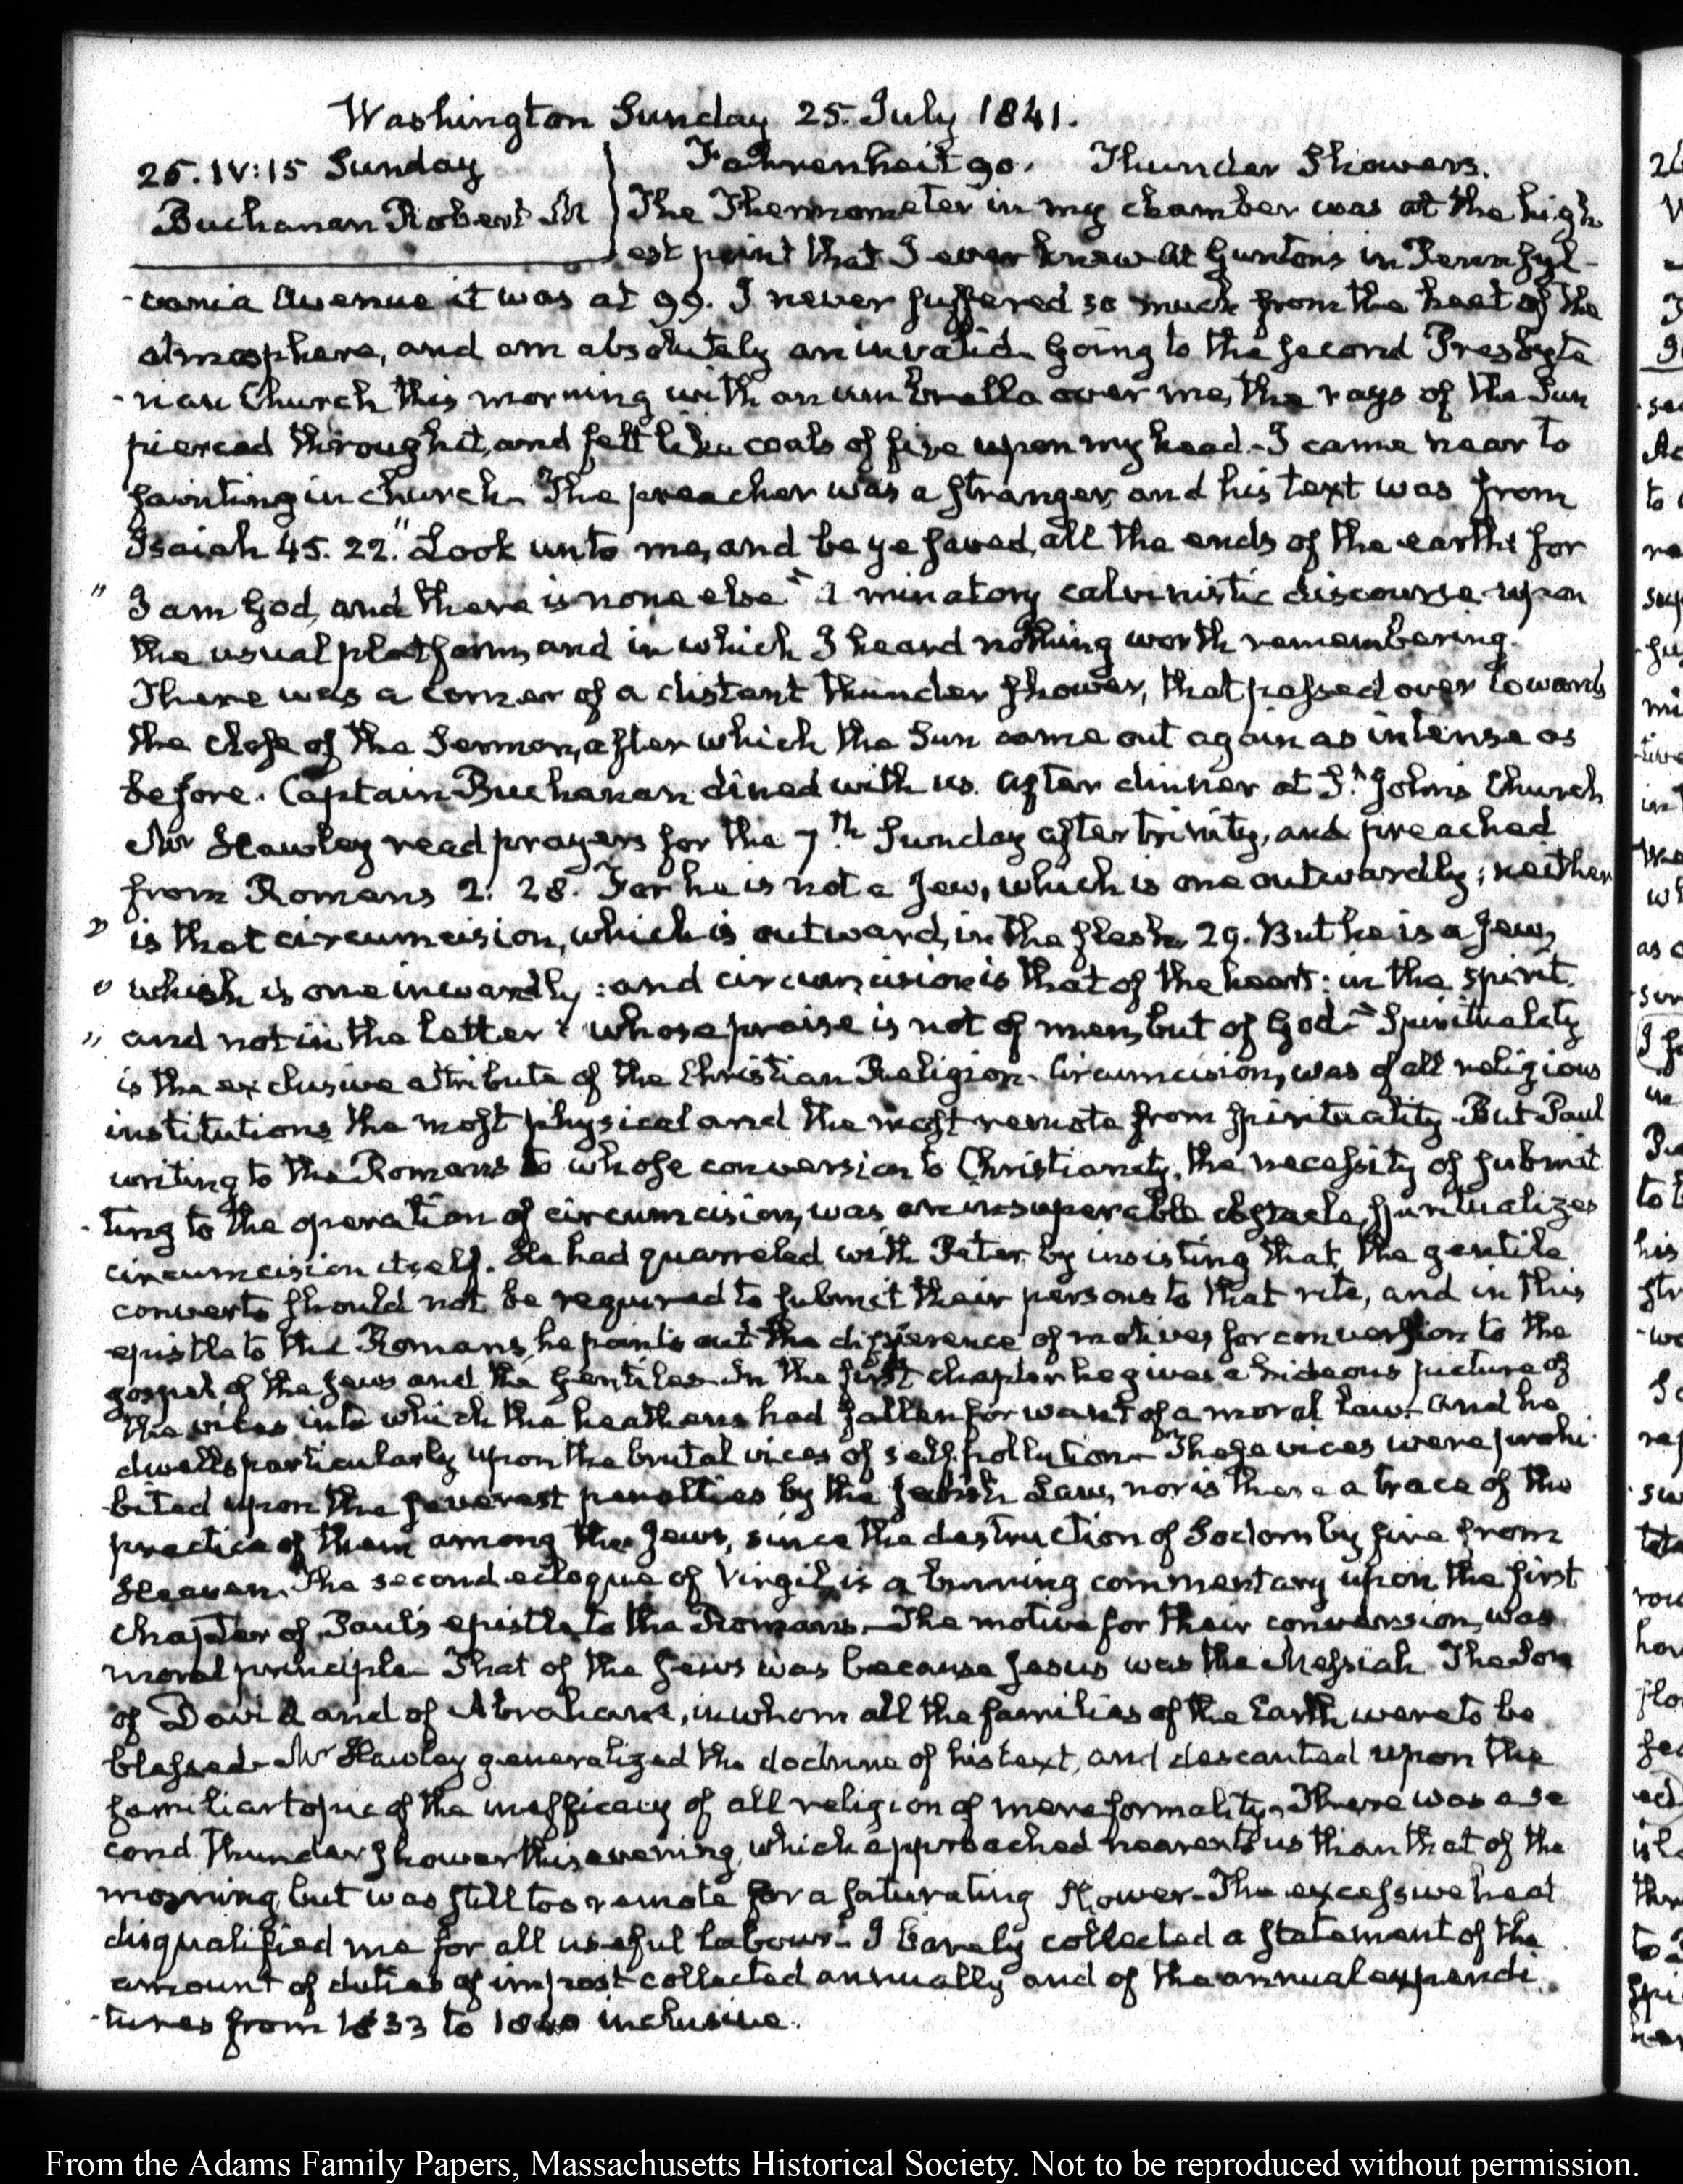 Washington Sunday 25. July 1841.
25. IV:15 Sunday
Buchanan Robert M
Fahrenheit 90. Thunder Showers.
The Thermometer in my chamber was at the high
est point that I ever knew. At Gunton's in Pennsyl-
-vania Avenue it was at 99. I never suffered so much from the heat of the
atmosphere, and am absolutely an invalid. Going to the second Presbyte
-rian Church this morning with an umbrella over me, the rays of the Sun
pierced through it, and felt like coals of fire upon my head. I came near to
fainting in church. The preacher was a stranger, and his text was from
Isaiah 45. 22. "Look unto me, and be ye saved, all the ends of the earth: for
" I am God, and there is none else" A minatory calvinistic discourse upon
the usual platform, and in which I heard nothing worth remembering.
There was a corner of a distant thunder shower, that passed over towards
the close of the Sermon, after which the Sun came out again as intense as
before. Captain Buchanan dined with us. After dinner at St. John's Church
Mr Hawley read prayers for the 7th Sunday after trinity, and preached
from Romans 2. 28. "For he is not a Jew, which is one outwardly; neither
" is that circumcision, which is outward, in the flesh. 29. But he is a Jew,
" which is one inwardly: and circumcision is that of the heart: in the spirit
" and not in the letter: whose praise is not of men, but of God." Spirituality
is the exclusive attribute of the Christian Religion. Circumcision, was of all religious
institutions the most physical and the most remote from spirituality. But Paul
writing to the Romans to whose conversion to Christianity, the necessity of submit
-ting to the operation of circumcision, was an insuperable obstacle, spiritualizes
circumcision itself. He had quarreled with Peter, by insisting that the gentile
converts should not be required to submit their persons to that rite, and in this
epistle to the Romans, he points out the difference of motives for conversion to the
gospel of the Jews and the Gentiles. In the first chapter he gives a hideous picture of
the vices into which the heathens had fallen for want of a moral law. And he
dwells particularly upon the brutal vices of self pollution. These vices were prohi-
bited upon the severest penalties by the Jewish Law, nor is there a trace of the
practice of them among the Jews, since the destruction of Sodom by fire from
Heaven. The second eclogue of Virgil, is a burning commentary upon the first
chapter of Paul's epistle to the Romans. The motive for their conversion, was
moral principle. That of the Jews was because Jesus was the Messiah. The Son
of David and of Abraham, in whom all the families of the Earth were to be
blessed. Mr Hawley generalized the doctrine of his text, and descanted upon the
familiar topic of the inefficacy of all religion of mere formality. There was a se
cond Thunder shower this evening, which approached nearer to us than that of the
morning, but was still too remote for a saturating shower. The excessive heat
disqualified me for all useful labour. I barely collected a statement of the
amount of duties of impost collected annually and of the annual expendi
-tures from 1833 to 1840 inclusive.
From the Adams Family Papers, Massachusetts Historical Society. Not to be reproduced without permission.